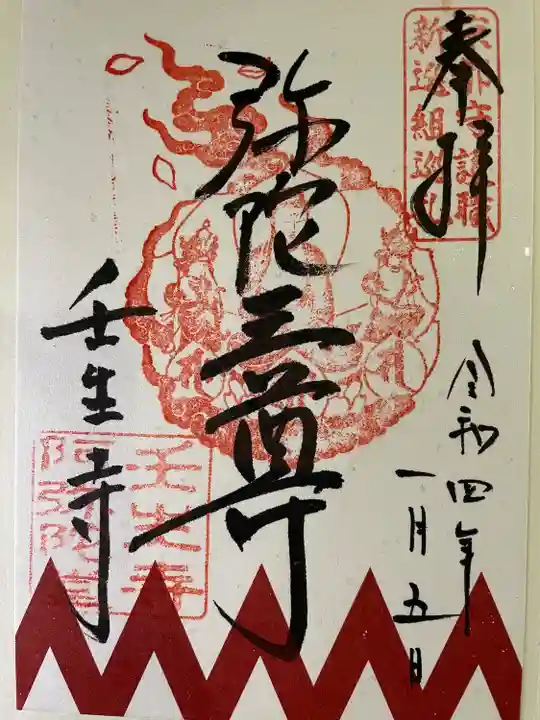 奉拝
新選組巡礼
令和四年
一月五日
弥陀三尊
壬生寺